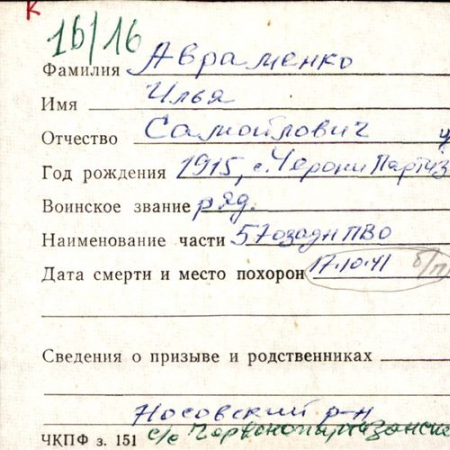 К
16/16
Фамилия Авраменко
Имя Илья
Отчество Самойлович
Год рождения 1915, с. Червони Партиз
Воинское звание ряд.
Наименование части 57 озадн ПВО
Дата смерти и место похорон 17.10.41 б/п
Сведения о призыве и родственниках
Носовский р-н
ЧКПФ з. 151 с/с Червонопартизанск